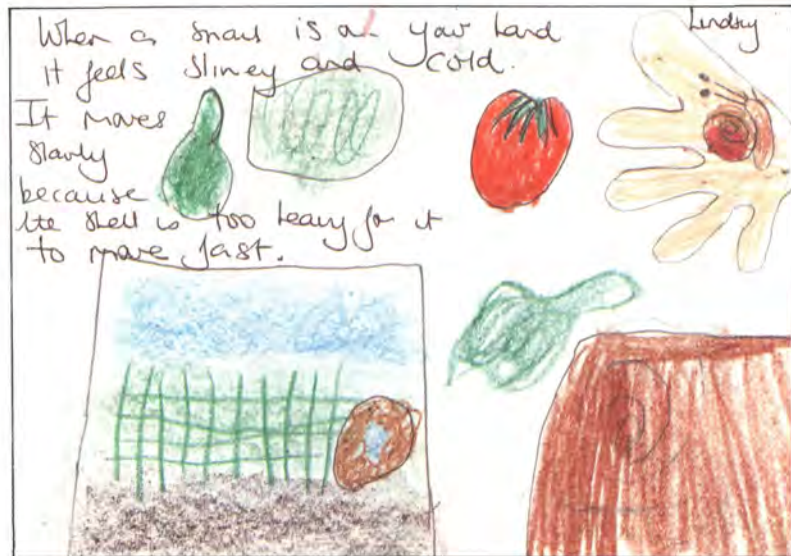 Lindsay
When a snail is on your hand
it feels slimey and cold.
It moves
slowly
because
the shell is too heavy for it
to move fast.